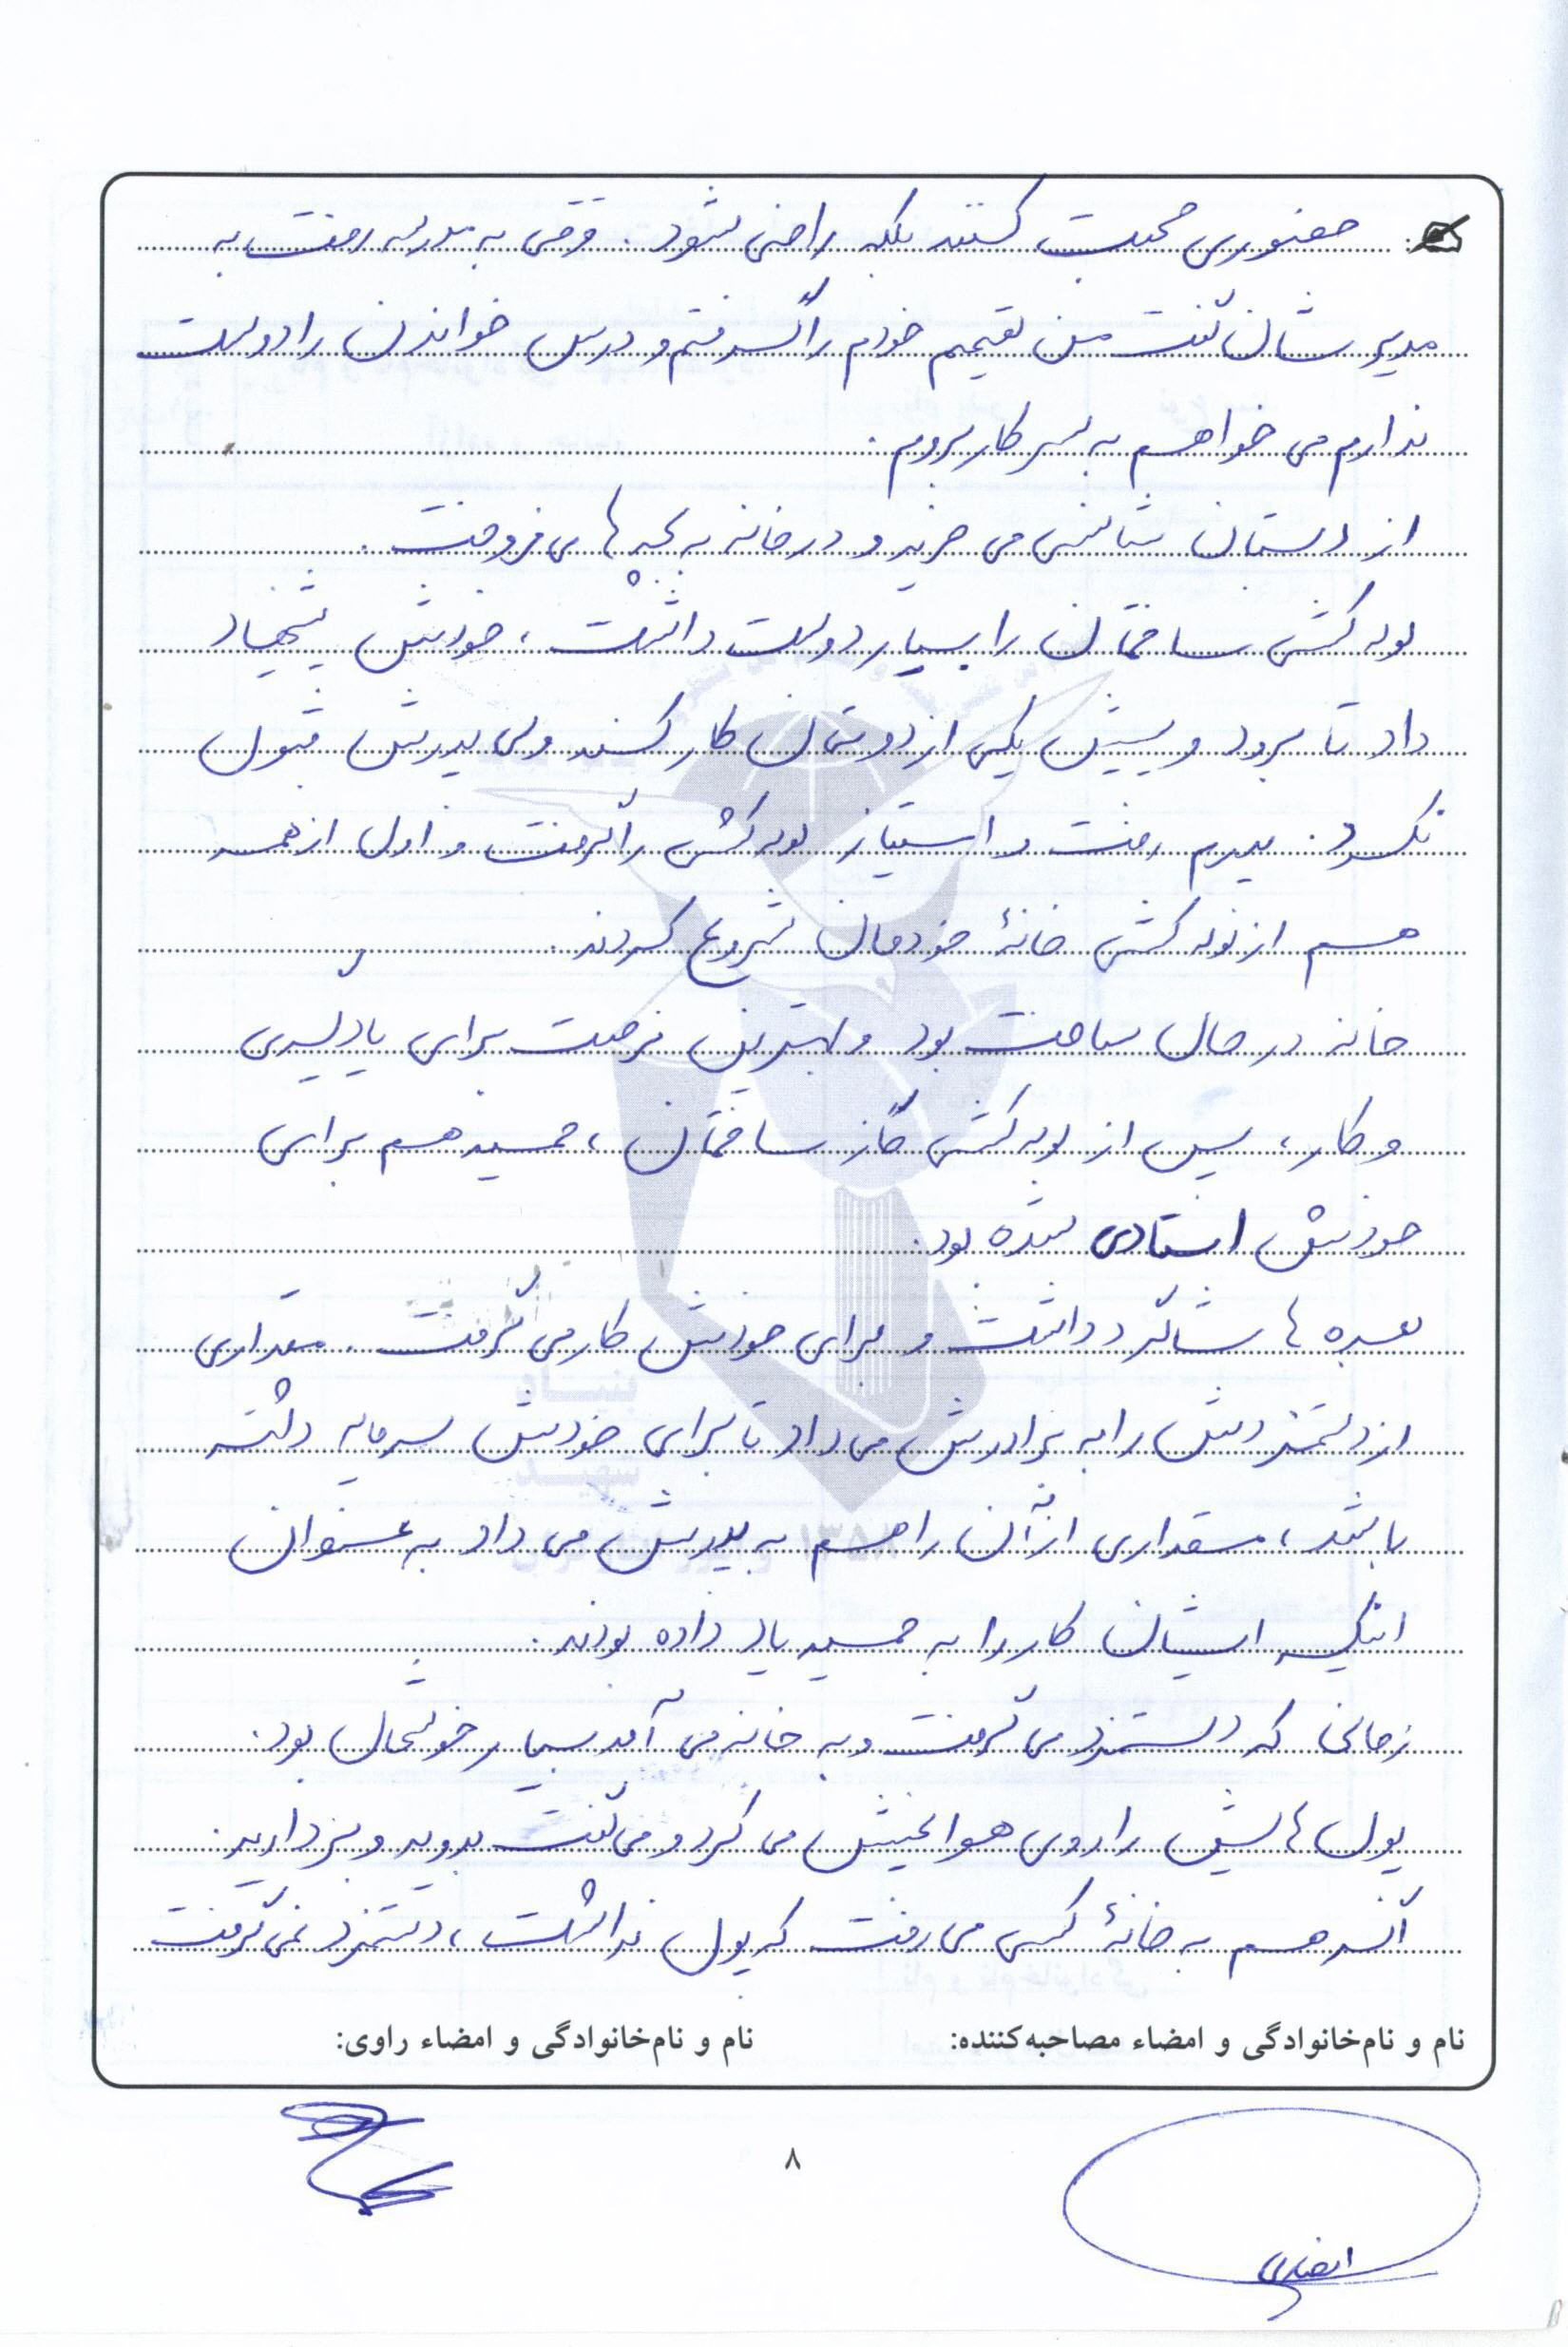 حضوری صحبت کنند بلکه راضی شود. وقتی به مدرسه رفت به
مدیرشان گفت من تصمیم خودم را گرفتم و درس خواندن را دوست
ندارم می خواهم به سر کار بروم.
از دستان شانسی می خرید و در خانه به بچه ها می فروخت.
لوله کشی ساختمان را بسیار دوست داشت، خودش پیشنهاد
داد تا برود و پیش یکی از دوستان کار کند ولی پدرش قبول
نکرد. پدرم رفت و امتیاز لوله کشی را گرفت و اول از همه
هم از لوله کشی خانهٔ خودمان شروع کردند.
خانه در حال ساخت بود و بهترین فرصت برای یادگیری
و کار، پس از لوله کشی گاز ساختمان، حمید هم برای
خودش استادی شده بود.
بعدها شاگرد داشت و برای خودش کار می گرفت. مقداری
از دستمزدش را به برادرش می داد تا برای خودش سرمایه داشته
باشد، مقداری از آن را هم به پدرش می داد به عنوان
اینکه ایشان کار را به حمید یاد داده بودند.
زمانی که دستمزد می گرفت و به خانه می آمد بسیار خوشحال بود.
پول هایش را روی هوا پخش می کرد و می گفت بدوید و بردارید.
اگر هم به خانهٔ کسی می رفت که پول نداشت، دستمزد نمی گرفت
نام و نام‌خانوادگی و امضاء مصاحبه‌کننده: نام و نام‌خانوادگی و امضاء راوی:
۸
انصاری